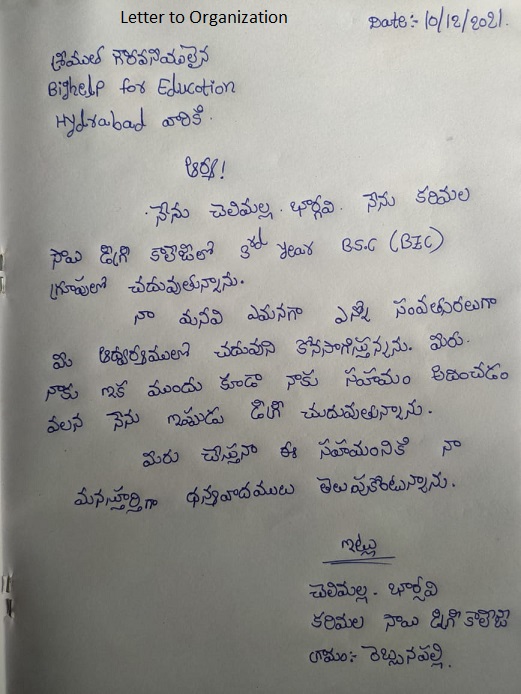 Letter to Organization
Date:- 10/12/2021.
శ్రీయుత గౌరవనీయులైన
Bighelp for Education
Hydrabad వారికి.
ఆర్య!
నేను చెలిమల్ల. భార్గవి. నేను కరిమల
సాయి డిగ్రీ కాలేజీలో 3rd year BS.C (BZC)
గ్రూపులో చదువుతున్నాను.
నా మనవి ఏమనగా ఎన్నో సంవత్సరాలుగా
మీ ఆధ్వర్యములో చదువుని కొనసాగిస్తున్నను. మీరు.
నాకు ఇక ముందు కూడా నాకు సహయం అదించడం
వలన నేను ఇపుడు డిగ్రీ చదువుతున్నాను.
మీరు చేస్తునా ఈ సహయంనికి నా
మనస్పూర్తిగా ధన్యవాదములు తెలుపుకుంటున్నాను.
ఇట్లు
చెలిమల్ల. భార్గవి
కరిమల సాయి డిగ్రీ కాలేజీ
గ్రామం:- రెబ్బనపల్లి.